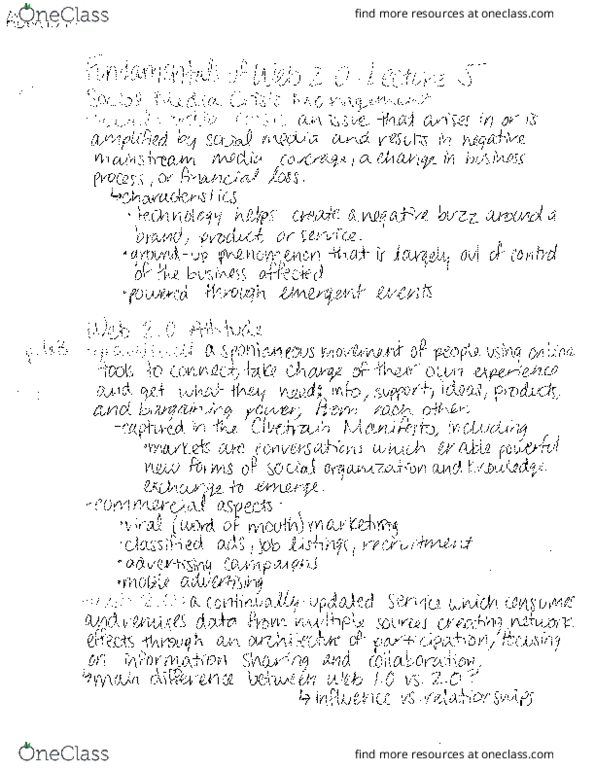 OneClass
find more resources at oneclass.com
Fundamentals of Web 2.0 - Lecture 5
Social Media Crisis Management
an issue that arises in or is
amplified by social media and results in negative
mainstream media coverage, a change in business
process, or financial loss.
↳characteristics
•technology helps create a negative buzz around a
brand, product or service.
•ground-up phenomenon that is largely out of control
of the business affected
•powered through emergent events
Web 2.0 Attitude
a spontaneous movement of people using online
tools to connect, take charge of their own experience
and get what they need; info, support, ideas, products,
and bargaining power, from each other.
-captured in the Cluetrain Manifesto, including
•markets are conversations which enable powerful
new forms of social organization and knowledge
exchange to emerge.
-commercial aspects
•viral (word of mouth) marketing
•classified ads, job listings, recruitment
•advertising campaigns
•mobile advertising
Web 2.0: a continually-updated service which consumes
and remixes data from multiple sources creating network
effects through an architecture of participation, focusing
on information sharing and collaboration.
↳main difference between Web 1.0 vs. 2.0?
↳ influence vs. relationships
OneClass
find more resources at oneclass.com